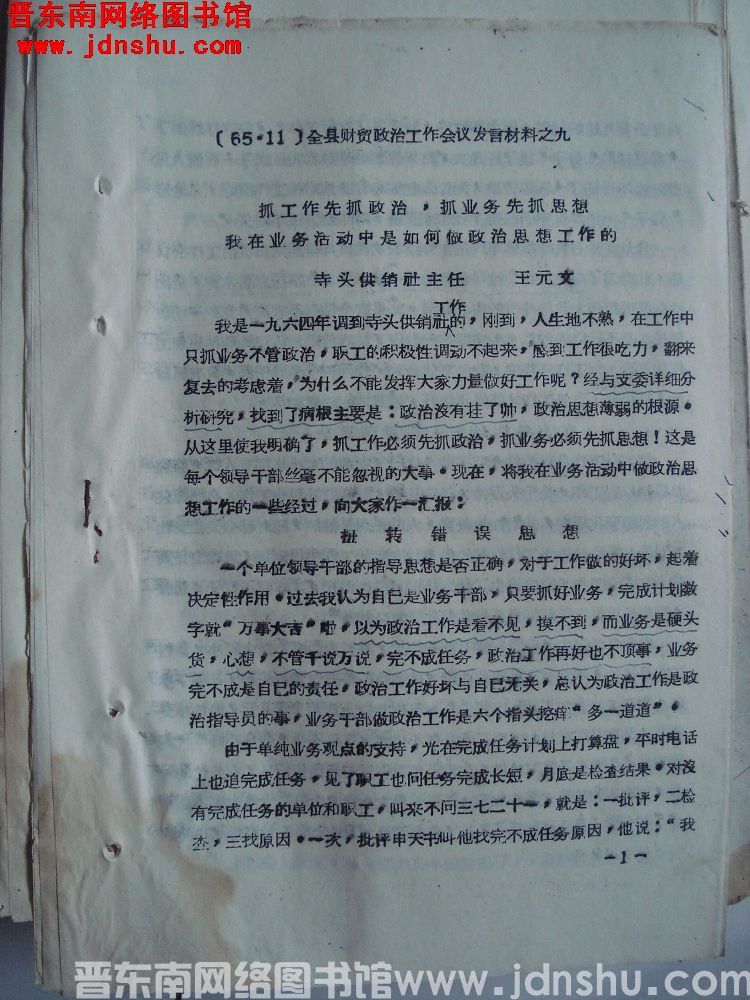 晋东南网络图书馆
www.jdnshu.com
（65·11）全县财贸政治工作会议发言材料之九
抓工作先抓政治，抓业务先抓思想
我在业务活动中是如何做政治思想工作的
寺头供销社主任 王元文
工作
我是一九六四年调到寺头供销社的，刚到，人生地不熟，在工作中
只抓业务不管政治，职工的积极性调动不起来，感到工作很吃力，翻来
复去的考虑着，为什么不能发挥大家力量做好工作呢？经与支委详细分
析研究，找到了病根主要是：政治没有挂了帅，政治思想薄弱的根源。
从这里使我明确了，抓工作必须先抓政治，抓业务必须先抓思想！这是
每个领导干部丝毫不能忽视的大事。现在，将我在业务活动中做政治思
想工作的一些经过，向大家作一汇报：
扭转错误思想
一个单位领导干部的指导思想是否正确，对于工作做的好坏，起着
决定性作用。过去我认为自己是业务干部，只要抓好业务，完成计划数
字就“万事大吉”啦，以为政治工作是看不见，摸不到，而业务是硬头
货，心想，不管千说万说，完不成任务，政治工作再好也不顶事，业务
完不成是自己的责任，政治工作好坏与自己无关，总认为政治工作是政
治指导员的事，业务干部做政治工作是六个指头挖痒“多一道道”。
由于单纯业务观点的支持，光在完成任务计划上打算盘，平时电话
上也追完成任务，见了职工也问任务完成长短，月底是检查结果。对没
有完成任务的单位和职工，叫来不问三七二十一，就是：一批评，二检
查，三找原因。一次，批评申天书叫他找完不成任务原因，他说：“我
－1－
晋东南网络图书馆www.jdnshu.com